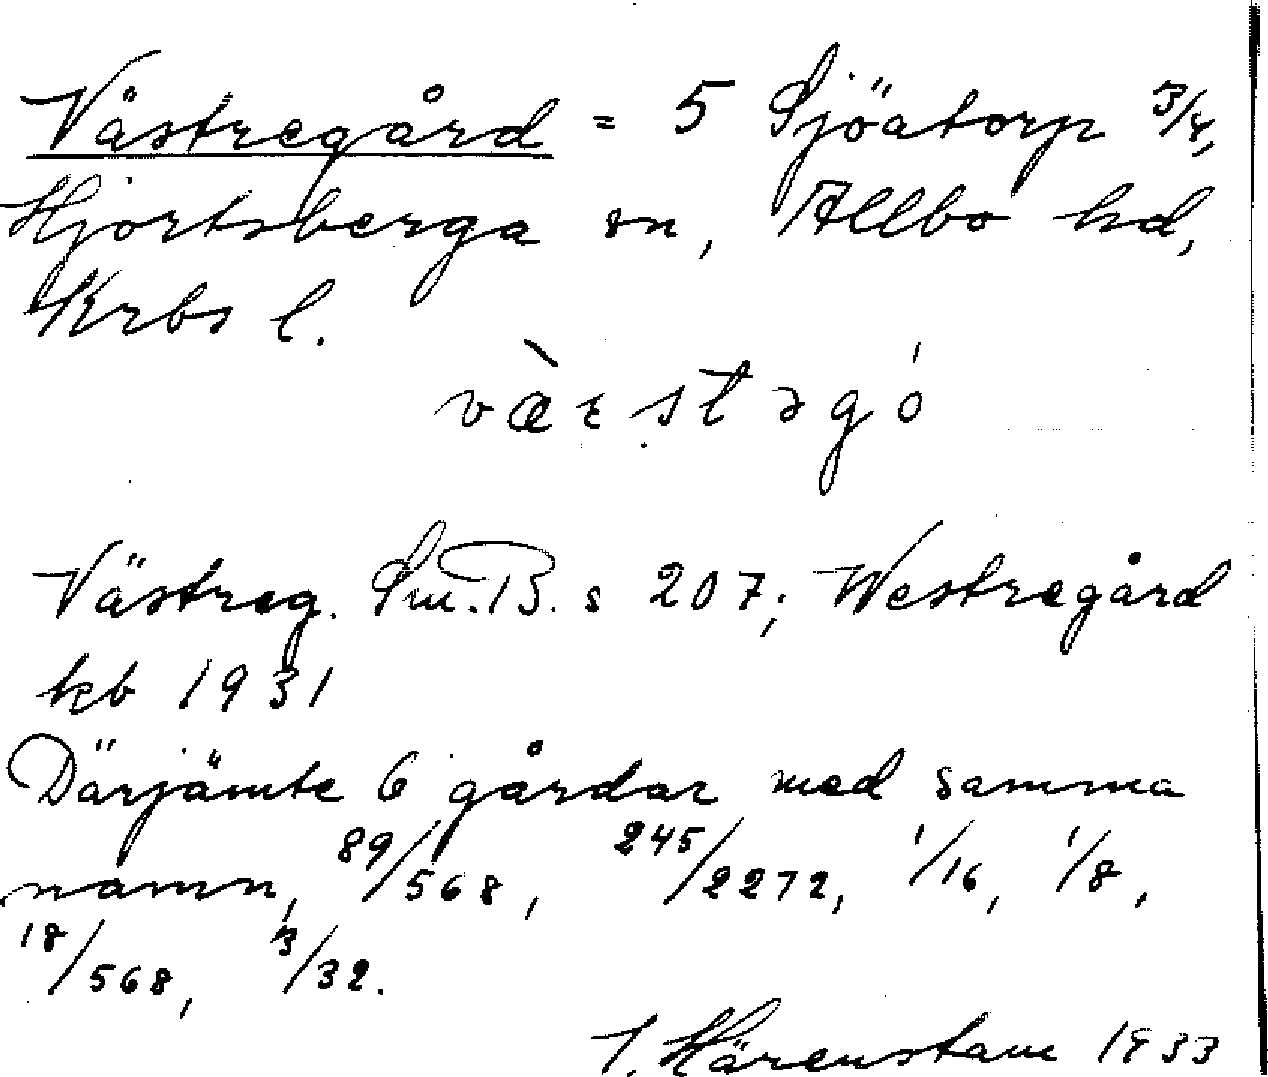 Västregård = 5 Sjöatorp 3/4,
Hjortsberga sn, Allbo hd,
Krbs l.
væ̀ɛstəgó
Västreg. Sm.B. s 207; Westregård
kb 1931
Därjämte 6 gårdar med samma
namn, 89/568, 245/2272, 1/16, 1/8,
18/568, 3/32.
J. Härenstam 1933